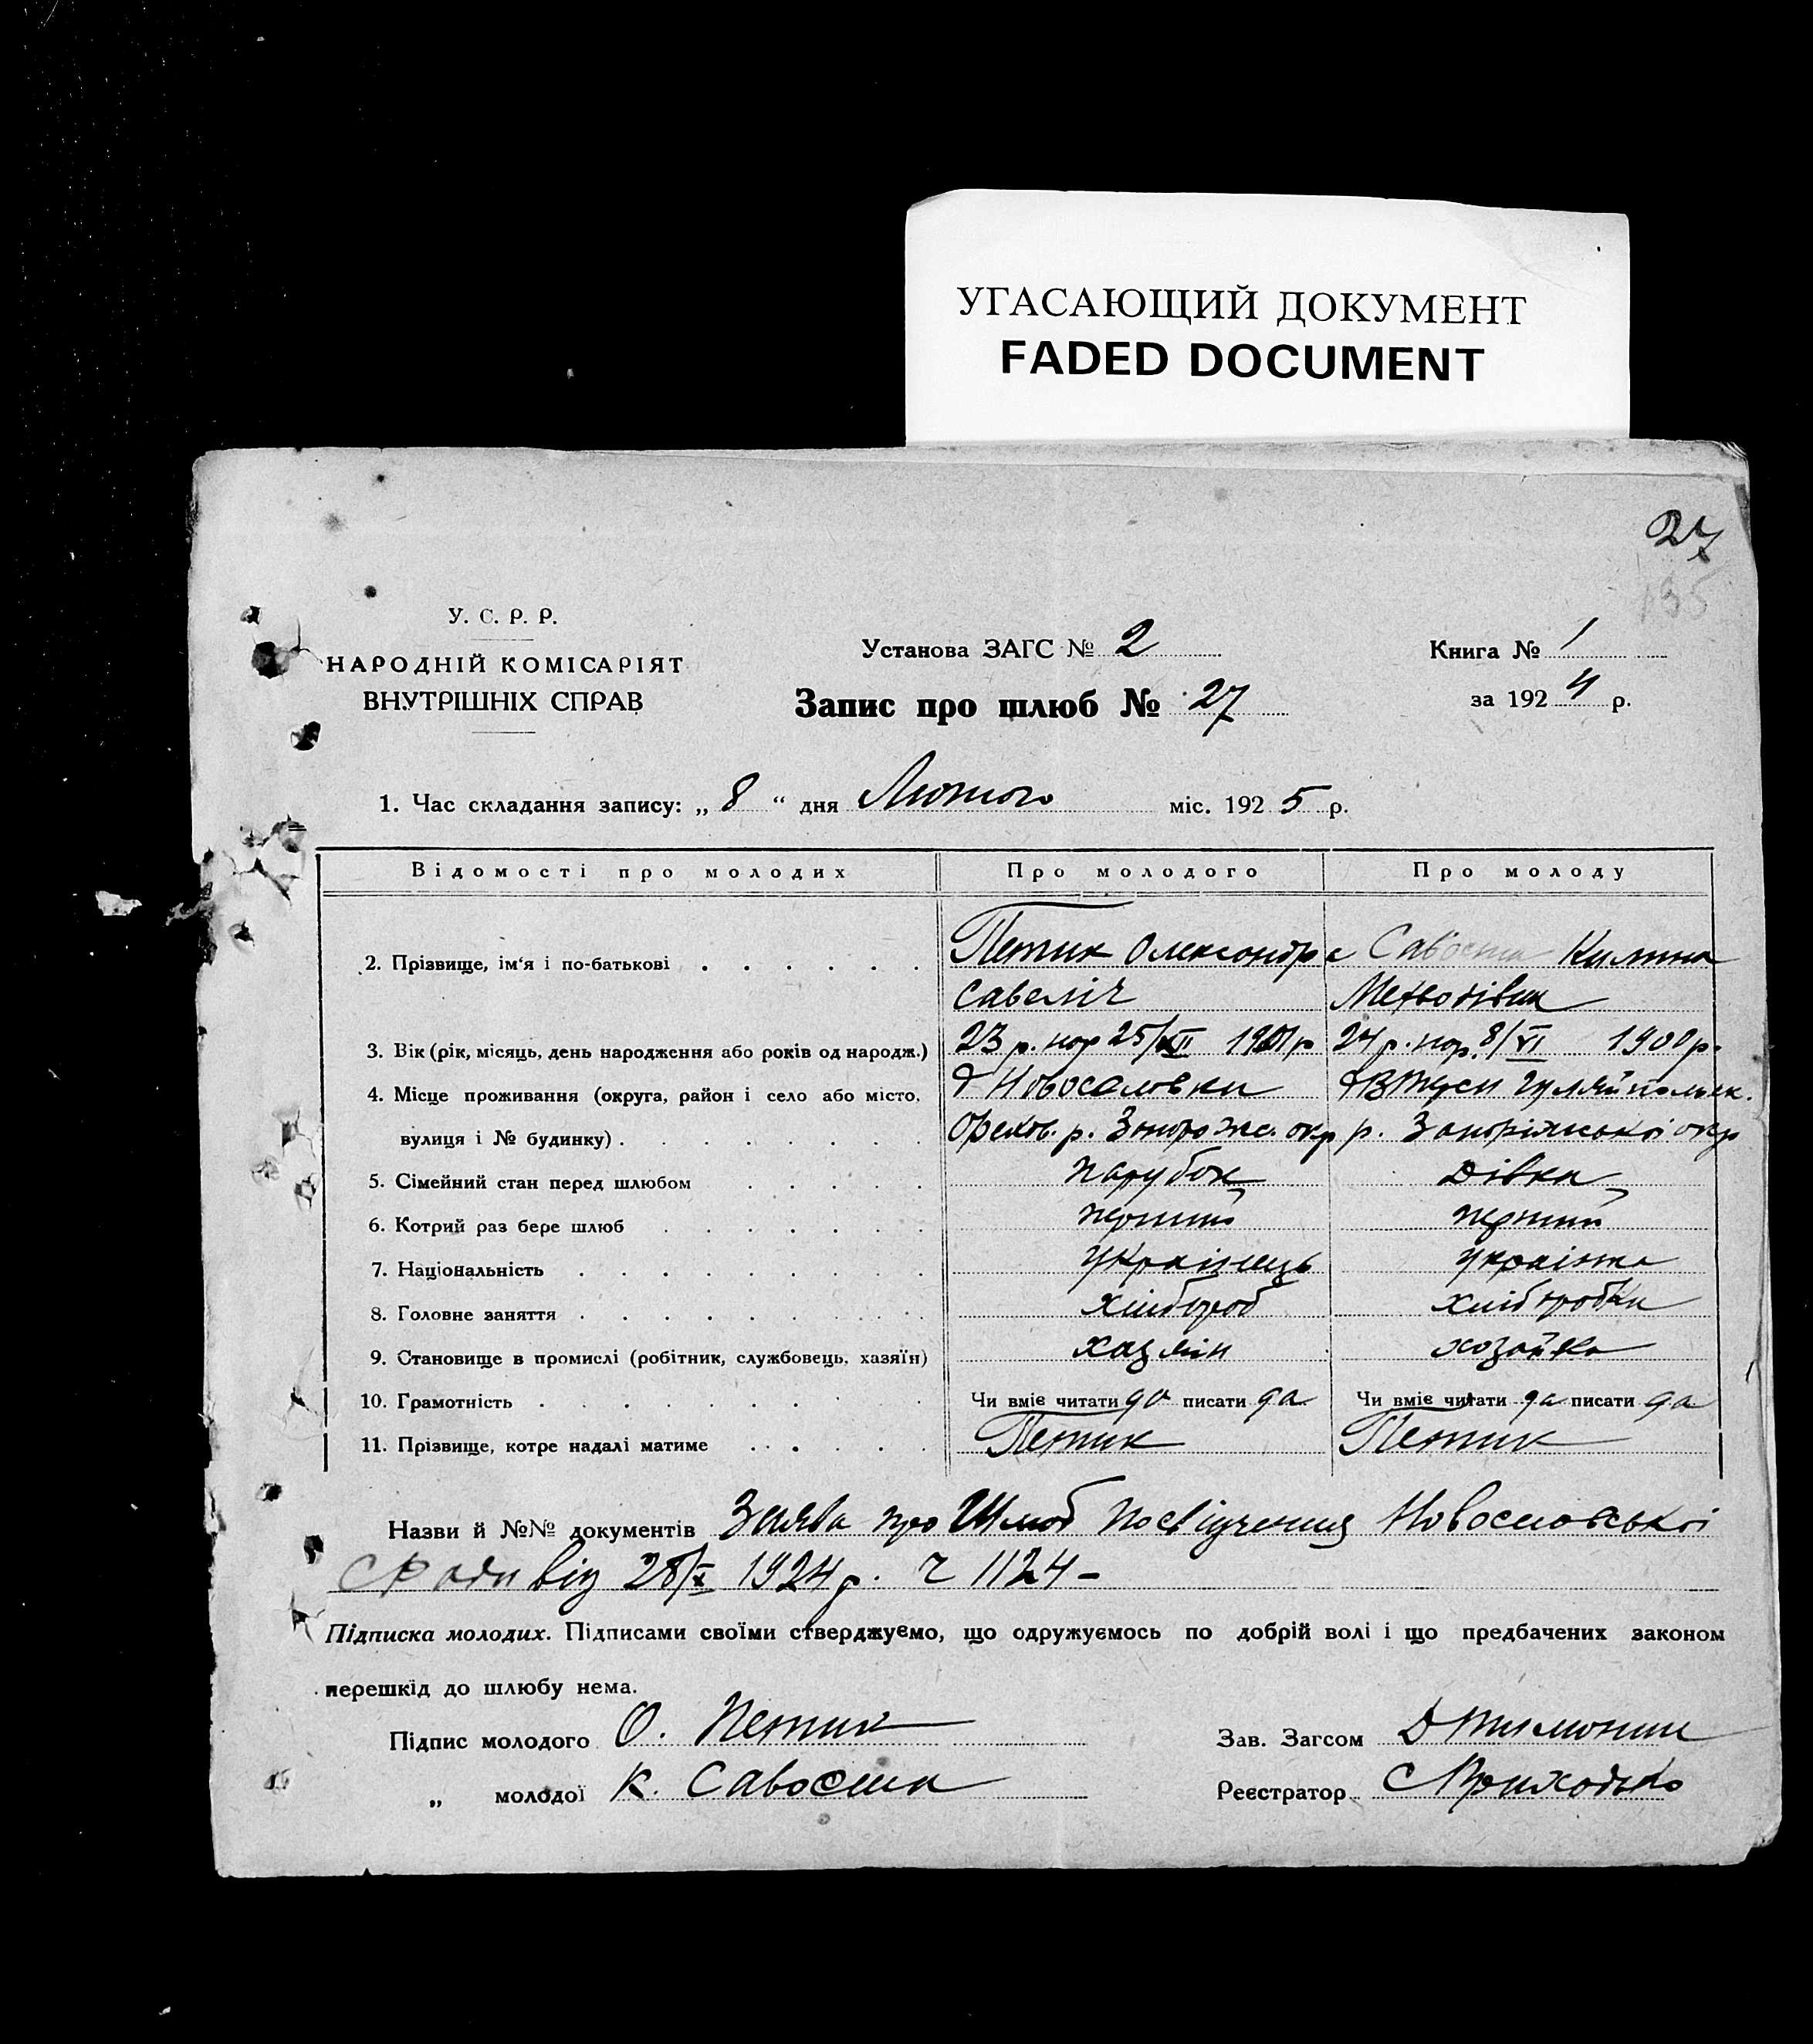 УГАСАЮЩИЙ ДОКУМЕНТ
FADED DOCUMENT
27
135
У. С. Р. Р.
НАРОДНІЙ КОМІСАРІЯТ
ВНУТРІШНІХ СПРАВ
Установа ЗАГС № 2
Запис про шлюб № 27
Книга № 1
за 1924 р.
1. Час складання запису: „ 8 “ дня Лютого міс. 1925 р.
Відомості про молодих Про молодого Про молоду
2. Прізвище, ім'я і по-батькові Петик Олександр Савоста Килина
Савеліч Мехводівна
3. Вік (рік, місяць, день народження або років од народж.) 23 р. нар 25/XII 1901 р 24 р. нар. 8/VI 1900 р.
4. Місце проживання (округа, район і село або місто, Новоселовки Гуляйпольск.
вулиця і № будинку) Орехов. р. Запорожс. окр р. Запоріжської окр
5. Сімейний стан перед шлюбом парубок дівка
6. Котрий раз бере шлюб перший перший
7. Національність українець українка
8. Головне заняття хлібороб хліборобка
9. Становище в промислі (робітник, службовець, хазяїн) хазяїн хозайка
10. Грамотність Чи вміє читати да писати да Чи вміє читати да писати да
11. Прізвище, котре надалі матиме Петик Петик
Назви й №№ документів Заява про Шлюб посвідчення Новоселовської
С Ради від 28/X 1924 р. ч 1124 -
Підписка молодих. Підписами своїми стверджуємо, що одружуємось по добрій волі і що предбачених законом
перешкід до шлюбу нема.
Підпис молодого О. Петик
Зав. Загсом
„ молодої К. Савоста
Реєстратор С Приходько